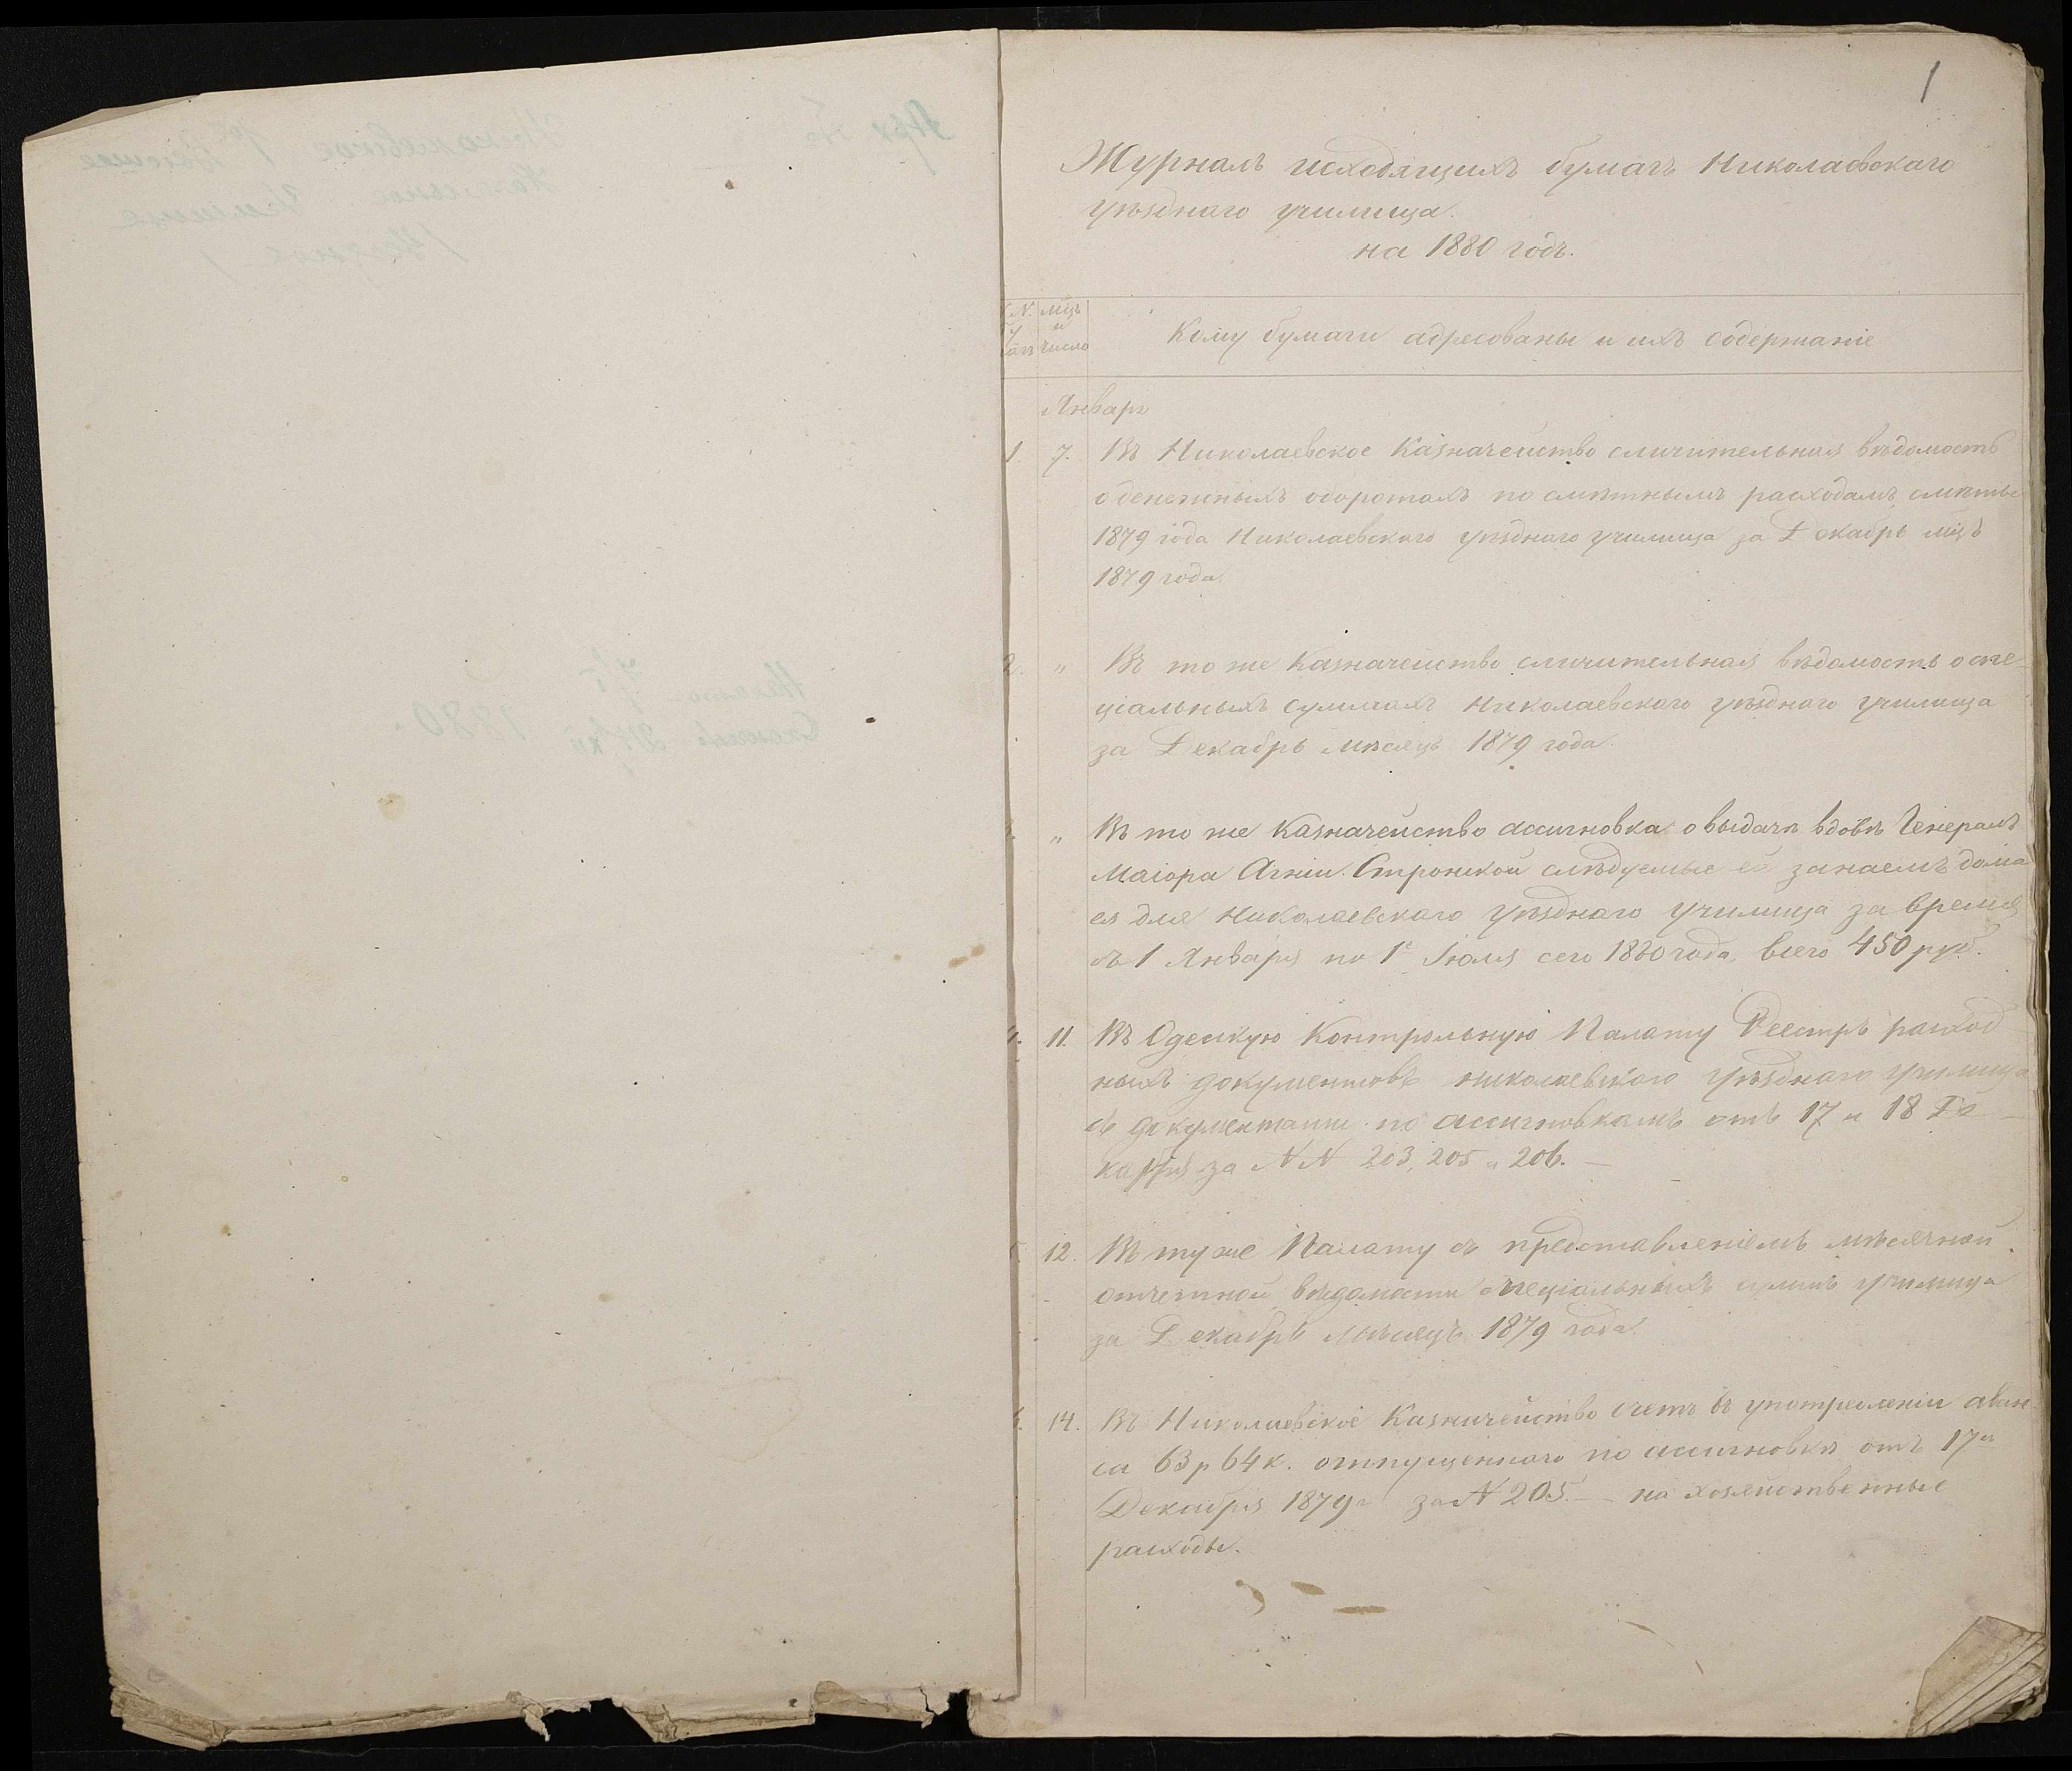 1
Журналъ исходящихъ бумагъ Николаевскаго
уѣзднаго училища.
на 1880 годъ.
N. мцъ
и
число
Кому бумаги адресованы и ихъ содержаніе
Январь
1. 7. Въ Николаевское Казначейство сличительная вѣдомость
о денежныхъ оборотахъ по смѣтнымъ расходамъ смѣты
1879 года Николаевскаго уѣзднаго училища за Декабрь мцъ
1879 года.
2. " Въ то же Казначейство сличительная вѣдомость о спе-
ціальныхъ суммахъ Николаевскаго уѣзднаго училища
за Декабрь мѣсяцъ 1879 года.
" Въ то же Казначейство ассигновка о выдачѣ вдовѣ Генералъ
Маіора Агніи Стронской слѣдуемые ей за наемъ дома
ея для Николаевскаго уѣзднаго училища за время
съ 1 Января по 1е Іюля сего 1880 года, всего 450 руб.
4. 11. Въ Одескую Контрольную Палату Реестръ расход
ныхъ документовъ Николаевскаго уѣзднаго училища
съ документами по ассигновкамъ отъ 17 и 18 Де-
кабря за NN 203, 205 и 206. —
12. Въ туже Палату съ представленіемъ мѣсячной
отчетной вѣдомости спеціальныхъ суммъ училища
за Декабрь мѣсяцъ 1879 года.
14. Въ Николаевское Казначейство счетъ въ употребленіи аван
са 63 р 64 к. отпущеннаго по ассигновкѣ отъ 17го
Декабря 1879 г за N 205. — на хозяйственные
расходы.